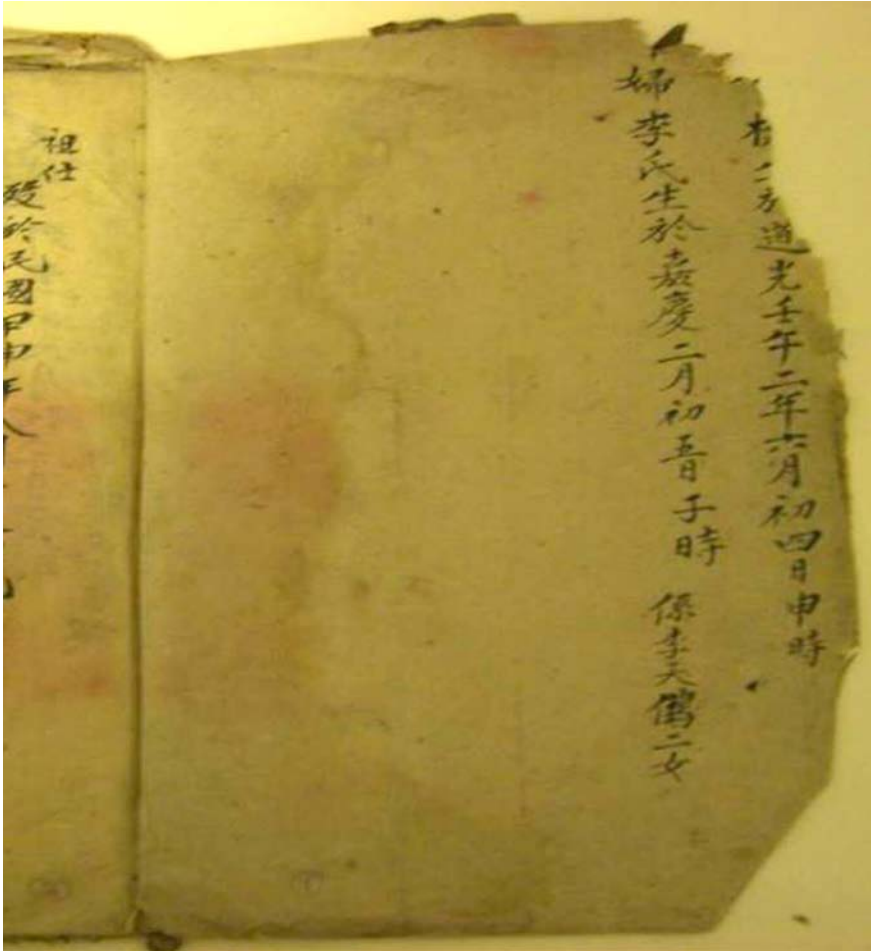 道光壬午二年六月初四日申時
婦李氏生於嘉慶二月初五日子時 係李天鶴二女
祖仕
歿於民國甲申年八月